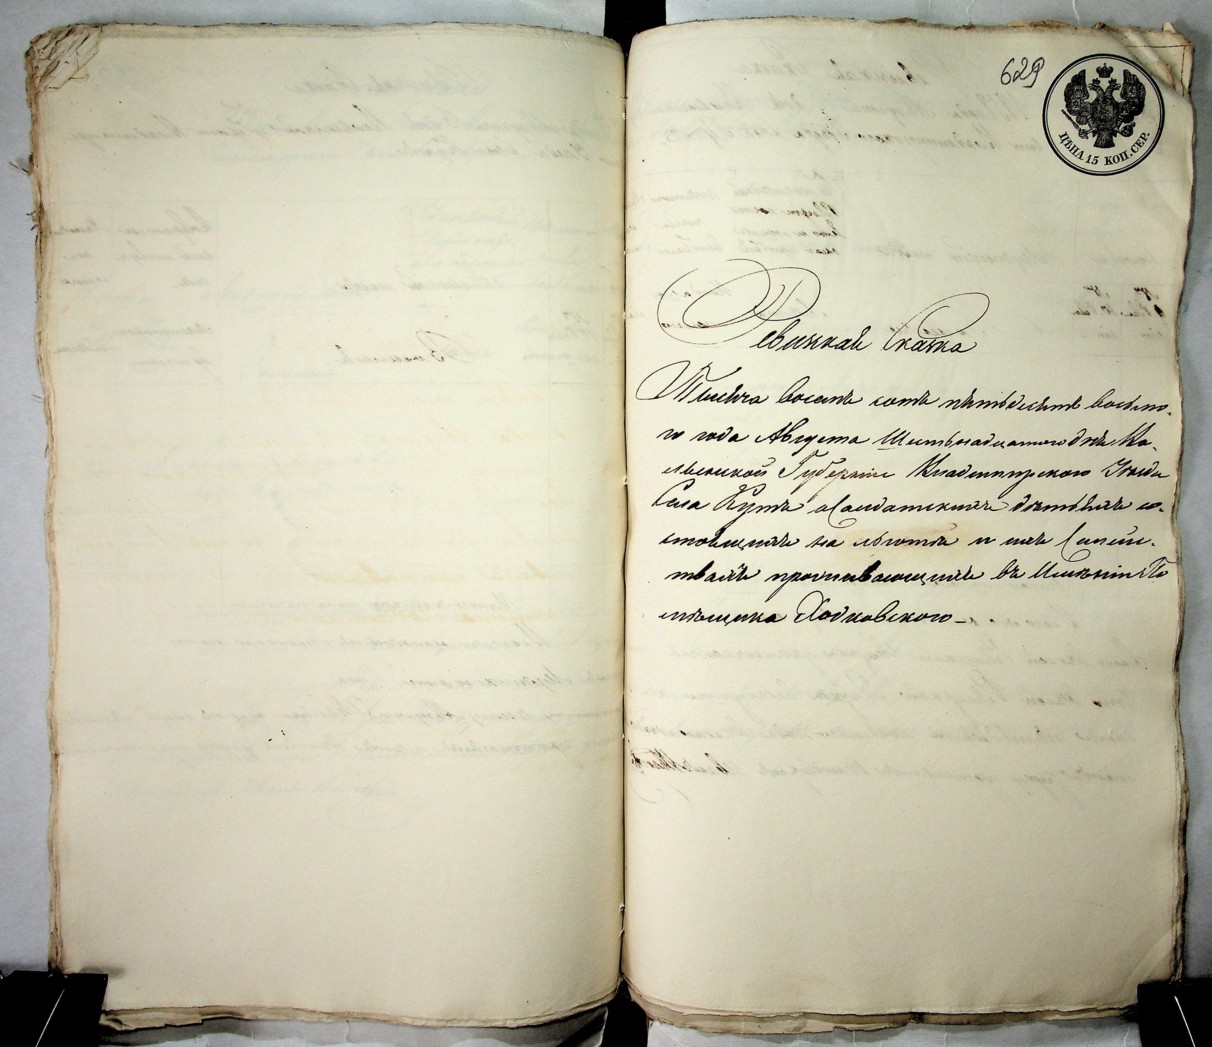 629
ЦѢНА 15 КОП. СЕР.
Ревизская Сказка
Тысяча восемь сотъ пятьдесятъ восьмо-
го года Августа Шестьнадцатого дня Во-
лынской Губерніи Владимірского Уезда
Села Купъ о Солдатскихъ детяхъ со-
стоящихъ на льготѣ и ихъ Семей-
ствахъ проживающихъ въ Имѣніи По
мѣщика Ходковского